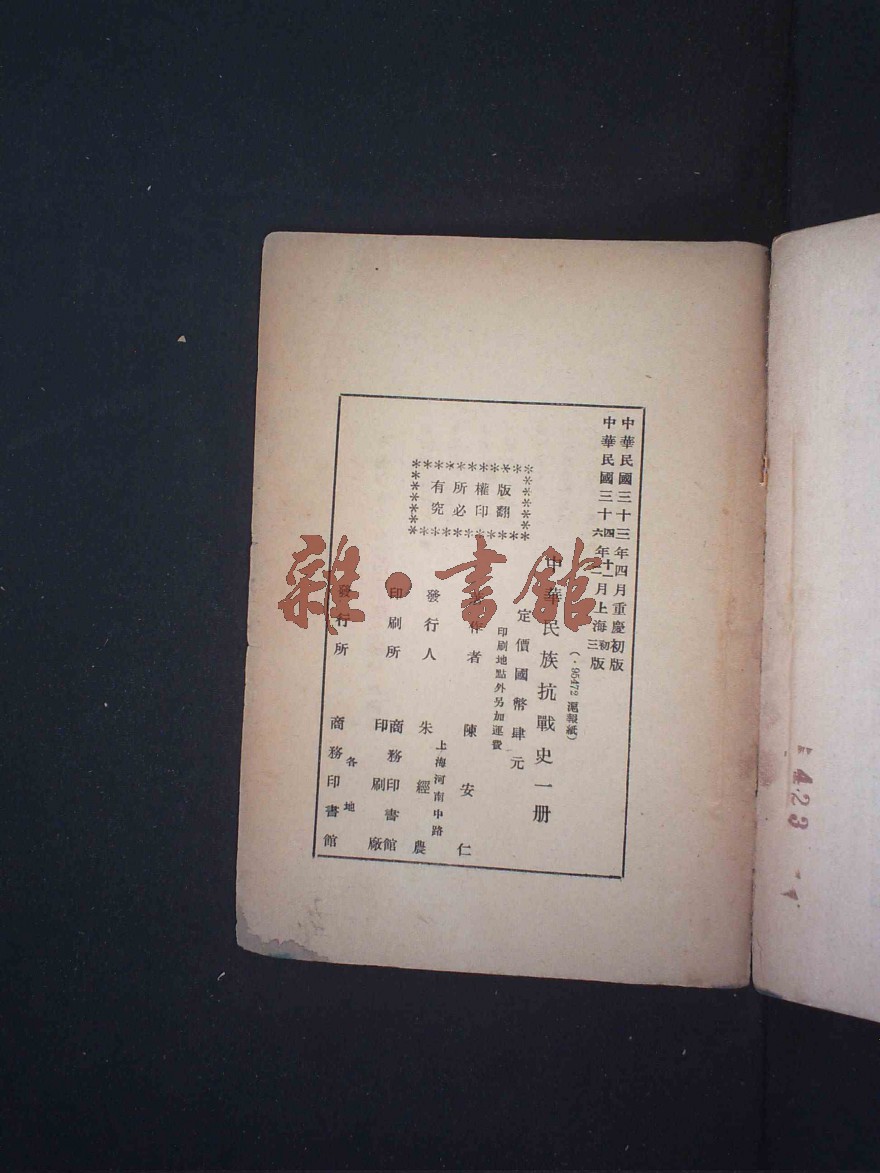 中華民國三十三年四月重慶初版
中華民國三十四年十一月上海初版
中華民國三十六年二月上海三版
(·95472 滬報紙)
中華民族抗戰史一册
定價國幣肆元
印刷地點外另加運費
版權所有
翻印必究
著作者 陳安仁
上海河南中路
發行人 朱經農
印刷所 商務印書館
印刷廠
各地
發行所 商務印書館
雜·書館
423